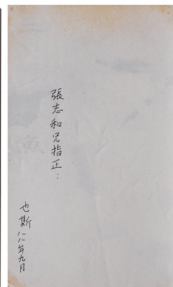 張志和兄指正：
也斯
八八年九月